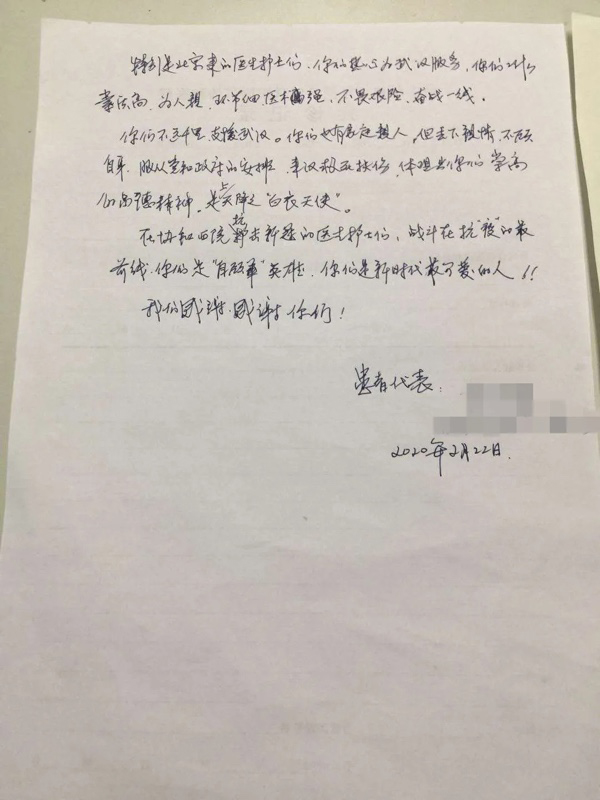 特别是北京来的医生护士们，你们热心为武汉服务，你们
素质高，为人亲，环节细，医术高强，不畏艰险，奋战一线。
你们不远千里，支援武汉。你们也有家庭亲人，但丢下亲情，不顾
自身，服从党和政府的安排，来汉救死扶伤，体现出你们崇高
的道德精神，是上天降之“白衣天使”。
在协和西院抗击新冠的医生护士们，战斗在抗“疫”的最
前线，你们是英雄，你们是新时代最可爱的人！！
我们感谢，感谢你们！
患者代表：
2020年2月22日.